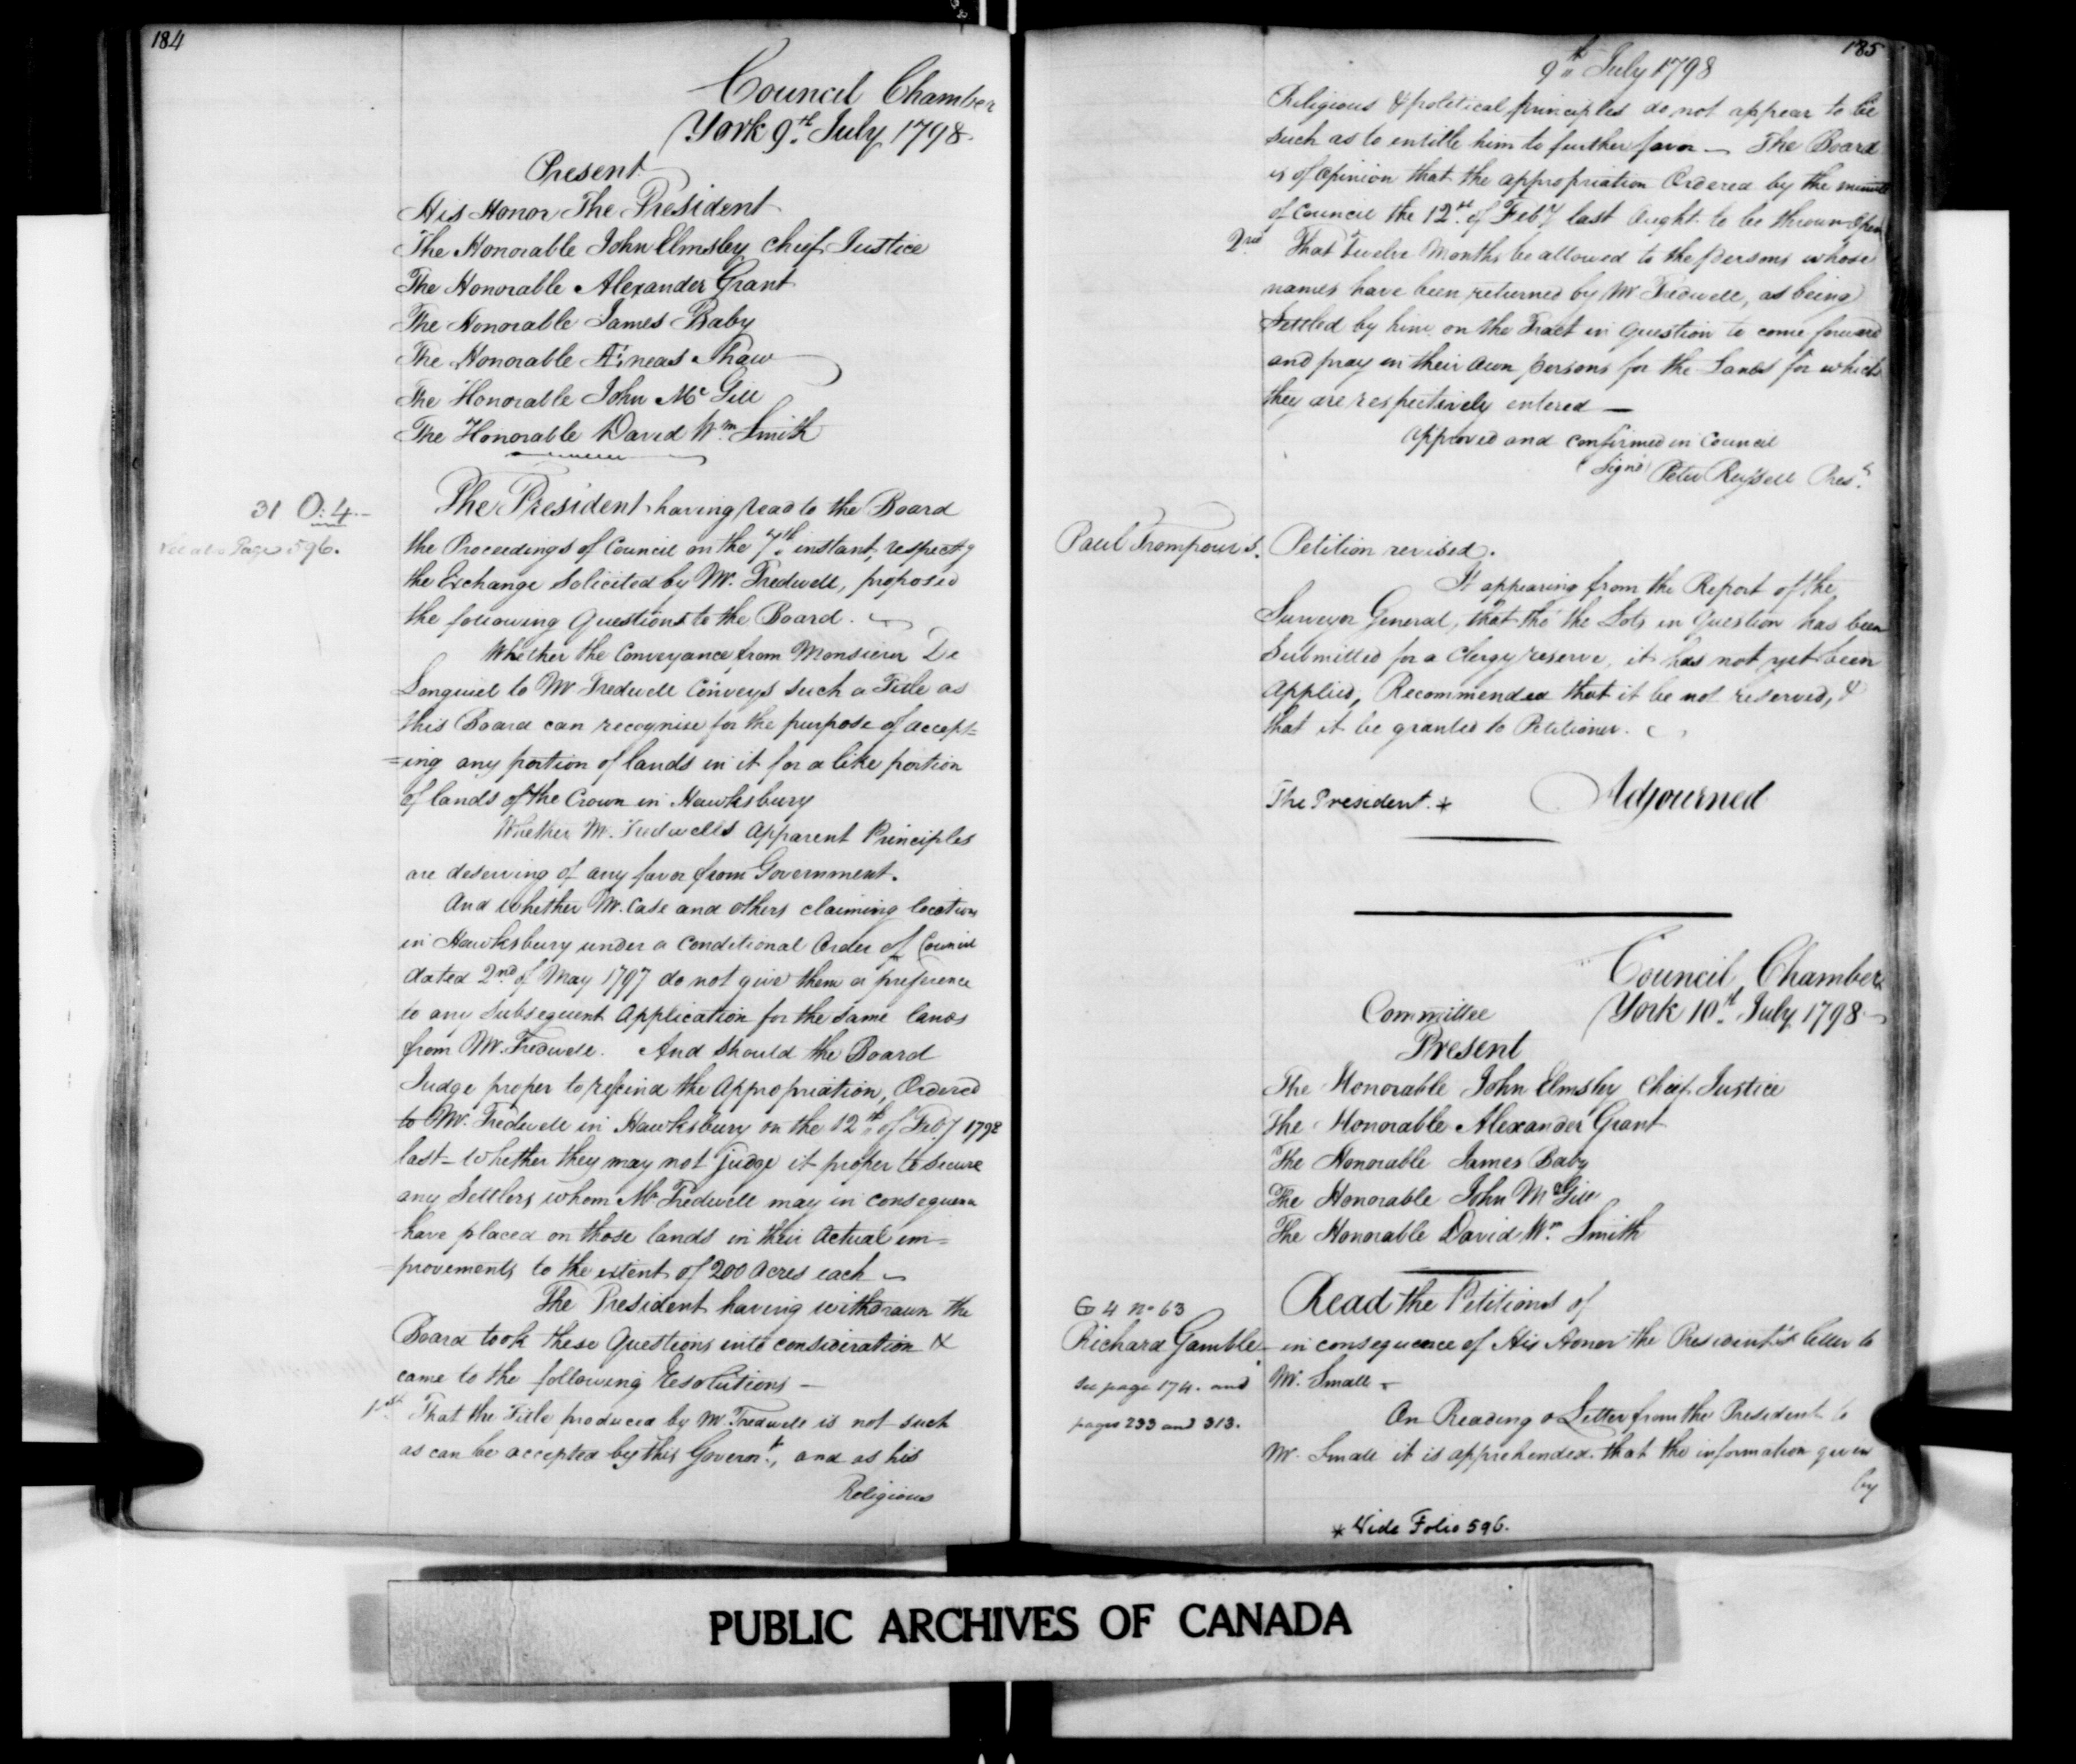 184
Council Chamber
York 9th. July 1798.
Present
His Honor The President
The Honorable John Elmsley Chief Justice
The Honorable Alexander Grant
The Honorable James Baby
The Honorable Æneas Shaw
The Honorable John Mc Gill
The Honorable David Wm. Smith
31 O: 4.-
Page 596.
The President having read to the Board
the Proceedings of Council on the 7th. instant, respectg
the Exchange Solicited by Mr. Tredwell, proposed
the following Questions to the Board.
Whether the Conveyance from Monsieur De
Longuiel to Mr Tredwell Conveys such a Title as
this Board can recognise for the purpose of accept=
=ing any portion of lands in it for a like portion
of lands of the Crown in Hawksbury
Whether Mr. Tredwells apparent Principles
are deserving of any favor from Government.
And whether Mr. Case and others claiming locations
in Hawksbury under a Conditional Order of Council
dated 2nd. of May 1797 do not give them a preference
to any subsequent Application for the same lands
from Mr. Tredwell. And should the Board
Judge proper to rescind the Appropriation, Ordered
to Mr. Tredwell in Hawksbury on the 12th of Feby 1798
last - whether they may not judge it proper to secure
any Settlers whom Mr Tredwell may in consequence
have placed on those lands in their Actual im=
provements to the extent of 200 Acres each
The President having withdrawn the
Board took these Questions into consideration &
came to the following Resolutions -
1st. That the Title produced by Mr. Tredwell is not such
as can be accepted by this Governt., and as his
Religious
185
9th July 1798
Religious & political principles do not appear to be
such as to entitle him to further favor - The Board
is of opinion that the appropriation Ordered by the minute
of Council the 12th. of Feby last Ought to be thrown Open
2nd That Twelve Months be allowed to the persons whose
names have been returned by Mr Tredwell, as being
Settled by him on the Tract in Question to come forward
and pray in their own persons for the Lands for which
they are respectively entered -
Approved and Confirmed in Council
(Signd) Peter Russell Prest.
Paul Trompour's. Petition revised.
It appearing from the Report of the
Surveyor General, that tho' the Lots in Question has been
Submitted for a Clergy reserve, it has not yet been
applied, Recommended that it be not reserved, &
that it be granted to Petitioner.
The President. * Adjourned
Council Chamber
Committee York 10th. July 1798
Present
The Honorable John Elmsley Chief Justice
The Honorable Alexander Grant
The Honorable James Baby
The Honorable John McGill
The Honorable David Wm. Smith
G 4 No 63 Read the Petitions of
Richard Gamble - in consequence of His Honor the President's letter to
See page 174. and Mr. Small -
pages 233 and 313. On Reading a Letter from the President to
Mr. Small it is apprehended that the information given
by
* Vide Folio 596.
PUBLIC ARCHIVES OF CANADA